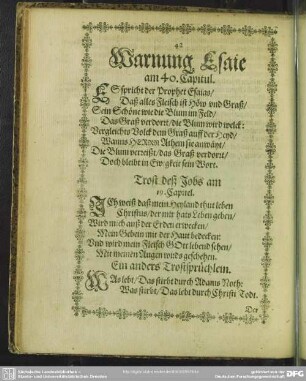 42
Warnung Esaie
am 40. Capitul.
ES spricht der Prophet Esaias/
Daß alles Fleisch ist Höw vnd Graß/
Sein Schöne wie die Blum im Feld/
Das Graß verdorrt/ die Blum wird welck:
Vergleicht s Volck dem Graß auff der Heyd/
Wanns HERREN Athem sie anwäyt/
Die Blum verreißt/ das Graß verdorrt/
Doch bleibt in Ewigkeit sein Wort.
Trost deß Jobs am
19. Capitel.
ICh weiß daß mein Heyland thut leben
Christus/ der mir hats Leben geben/
Wird mich auß der Erden erwecken/
Mein Gebein mit der Haut bedecken:
Vnd wird mein Fleisch GOtt lebend sehen/
Mit meinen Augen wirds geschehen.
Ein anders Trostsprüchlein.
WAs lebt/ Das stirbt durch Adams Noth:
Was stirbt/ Das lebt durch Christi Todt.
Der